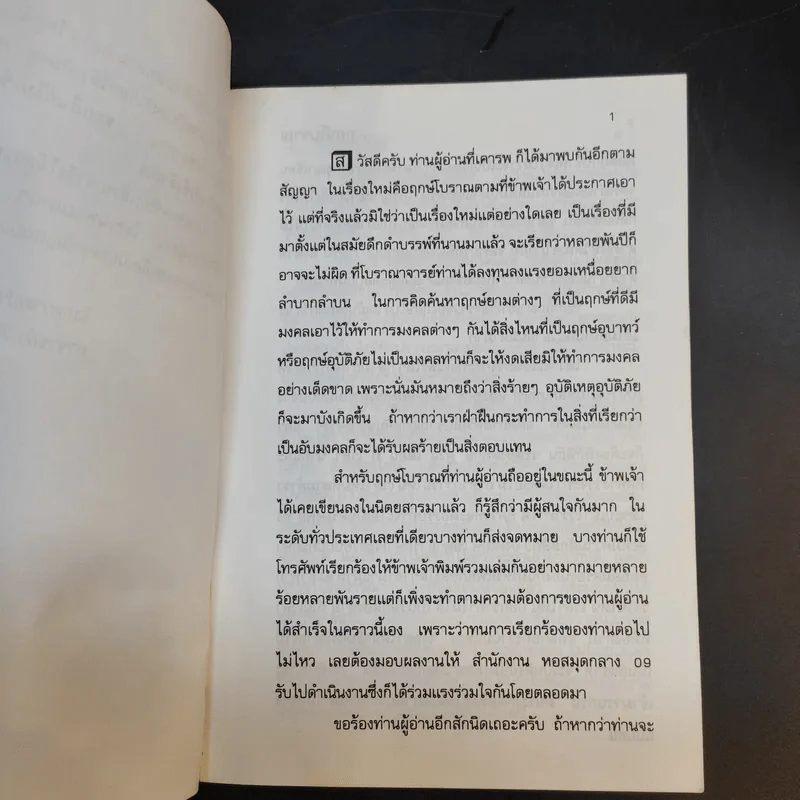 1
สวัสดีครับ ท่านผู้อ่านที่เคารพ ก็ได้มาพบกันอีกตาม
สัญญา ในเรื่องใหม่คือฤกษ์โบราณตามที่ข้าพเจ้าได้ประกาศเอา
ไว้ แต่ที่จริงแล้วมิใช่ว่าเป็นเรื่องใหม่แต่อย่างใดเลย เป็นเรื่องที่มี
มาตั้งแต่ในสมัยดึกดำบรรพ์ที่นานมาแล้ว จะเรียกว่าหลายพันปีก็
อาจจะไม่ผิด ที่โบราณาจารย์ท่านได้ลงทุนลงแรงยอมเหนื่อยยาก
ลำบากลำบน ในการคิดค้นหาฤกษ์ยามต่างๆ ที่เป็นฤกษ์ที่ดีมี
มงคลเอาไว้ให้ทำการมงคลต่างๆ กันได้สิ่งไหนที่เป็นฤกษ์อุบาทว์
หรือฤกษ์อุบัติภัยไม่เป็นมงคลท่านก็จะให้งดเสียมิให้ทำการมงคล
อย่างเด็ดขาด เพราะนั่นมันหมายถึงว่าสิ่งร้ายๆ อุบัติเหตุอุบัติภัย
ก็จะมาบังเกิดขึ้น ถ้าหากว่าเราฝ่าฝืนกระทำการในสิ่งที่เรียกว่า
เป็นอับมงคลก็จะได้รับผลร้ายเป็นสิ่งตอบแทน
สำหรับฤกษ์โบราณที่ท่านผู้อ่านถืออยู่ในขณะนี้ ข้าพเจ้า
ได้เคยเขียนลงในนิตยสารมาแล้ว ก็รู้สึกว่ามีผู้สนใจกันมาก ใน
ระดับทั่วประเทศเลยทีเดียวบางท่านก็ส่งจดหมาย บางท่านก็ใช้
โทรศัพท์เรียกร้องให้ข้าพเจ้าพิมพ์รวมเล่มกันอย่างมากมายหลาย
ร้อยหลายพันรายแต่ก็เพิ่งจะทำตามความต้องการของท่านผู้อ่าน
ได้สำเร็จในคราวนี้เอง เพราะว่าทนการเรียกร้องของท่านต่อไป
ไม่ไหว เลยต้องมอบผลงานให้ สำนักงาน หอสมุดกลาง 09
รับไปดำเนินงานซึ่งก็ได้ร่วมแรงร่วมใจกันโดยตลอดมา
ขอร้องท่านผู้อ่านอีกสักนิดเถอะครับ ถ้าหากว่าท่านจะ